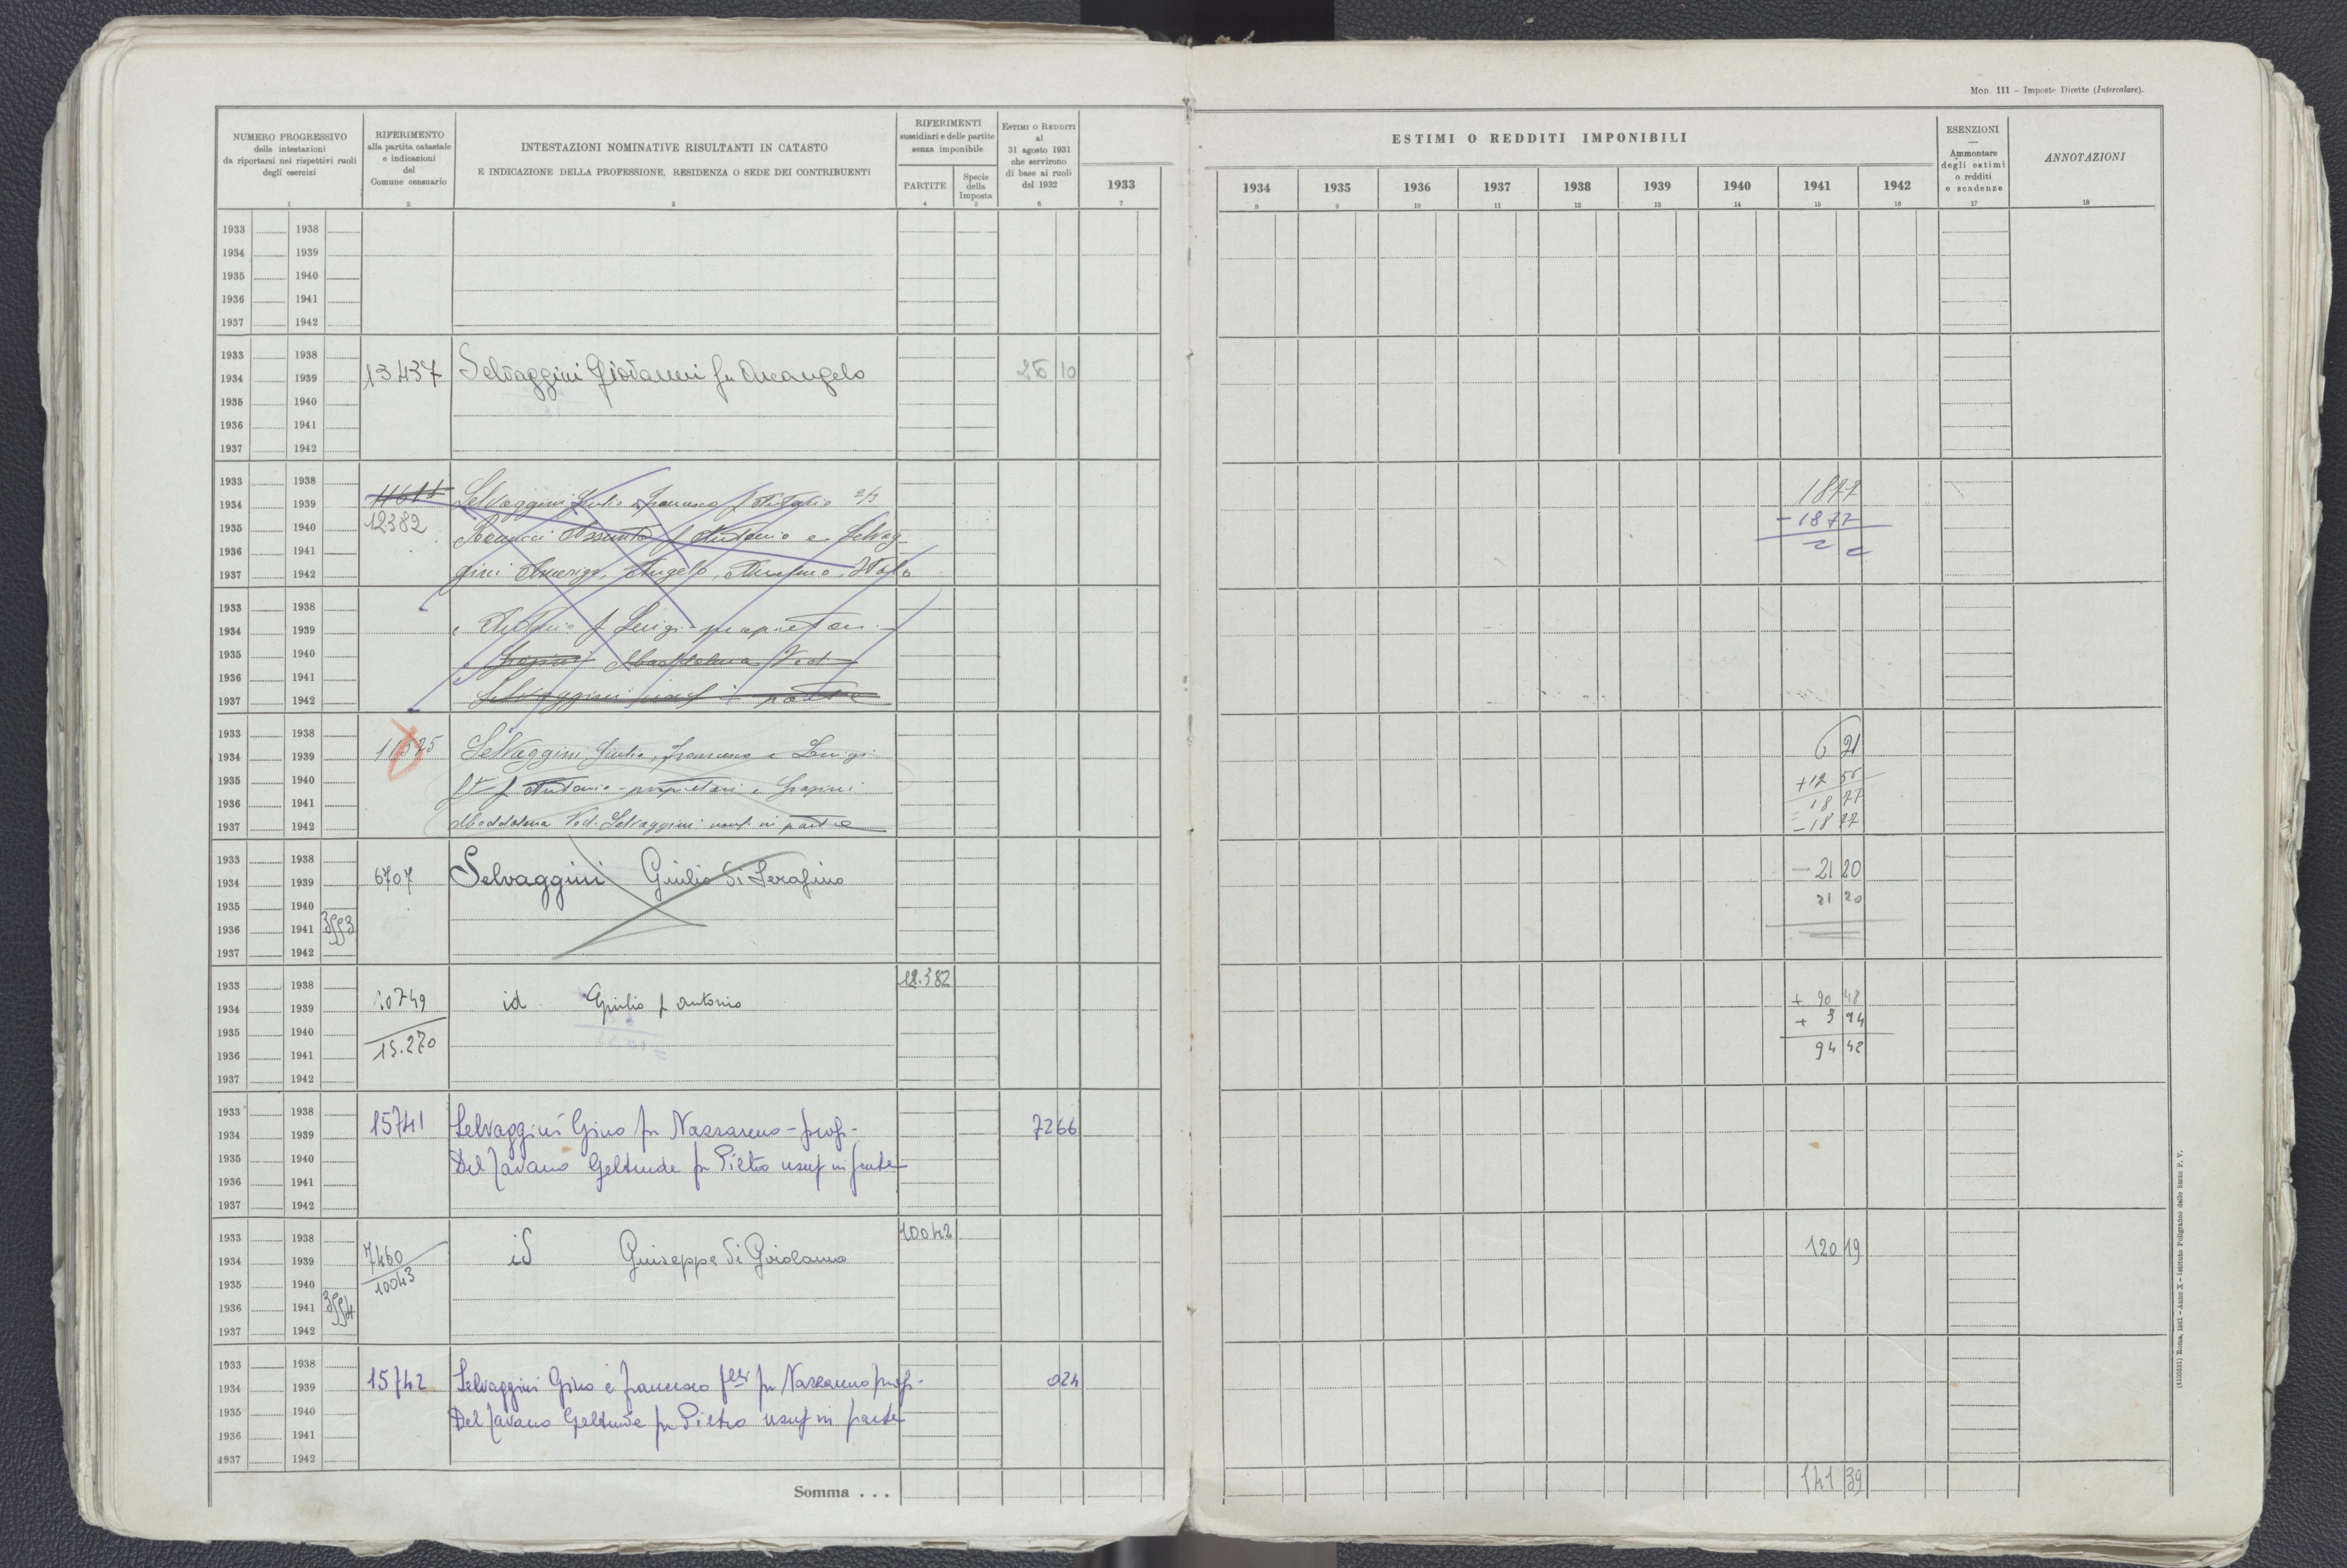 Mon. 111 – Imposte Dirette (Intercalare).
NUMERO PROGRESSIVO
delle intestazioni
da riportarsi nei rispettivi ruoli
degli esercizi
1
RIFERIMENTO
alla partita catastale
e indicazioni
del
Comune censuario
2
INTESTAZIONI NOMINATIVE RISULTANTI IN CATASTO
E INDICAZIONE DELLA PROFESSIONE, RESIDENZA O SEDE DEI CONTRIBUENTI
3
RIFERIMENTI
sussidiari e delle partite
senza imponibile
PARTITE
4
Specie
della
Imposta
5
ESTIMI O REDDITI
al
31 agosto 1931
che servirono
di base ai ruoli
del 1932
6
1933
7
ESTIMI O REDDITI IMPONIBILI
1934 1935 1936 1937 1938 1939 1940 1941 1942
8 9 10 11 12 13 14 15 16
ESENZIONI
—
Ammontare
degli estimi
o redditi
e scadenze
17
ANNOTAZIONI
18
1933 1938
1934 1939
1935 1940
1936 1941
1937 1942
1933 1938
1934 1939 13437 Selvaggini Giovanni fu Arcangelo 26 10
1935 1940
1936 1941
1937 1942
1933 1938
1934 1939 Selvaggini Giulio e Francesco f Antonio 2/3 1877
1935 1940 12382 Assunta f Antonio e Selvag- – 1877
1936 1941
1937 1942 gini Amerigo, Angelo, Anselmo, Italo
1933 1938
1934 1939 e Antonio f Luigi proprietari
1935 1940 e Grazini Maddalena Ved.
1936 1941
1937 1942 Selvaggini usuf in parte
1933 1938
1934 1939 Selvaggini Giulio, Francesco e Luigi 6 21
1935 1940 f Antonio – proprietari e Grazini +12 56
1936 1941 18 77
1937 1942 Maddalena Ved. Selvaggini usuf. in parte – 18 77
1933 1938
1934 1939 6707 Selvaggini Giulio di Serafino – 21 20
1935 1940 21 20
1936 1941
1937 1942
1933 1938 12.382
1934 1939 10749 id Giulio f Antonio + 90 48
1935 1940 + 3 94
1936 1941 15.270 94 42
1937 1942
1933 1938
1934 1939 15741 Selvaggini Gino fu Nazzareno – prop. 72 66
1935 1940 Del Savano Geltrude fu Pietro usuf in parte
1936 1941
1937 1942
1933 1938 10042
1934 1939 7460 id Giuseppe di Girolamo 120 19
1935 1940 10043
1936 1941
1937 1942
1933 1938
1934 1939 15742 Selvaggini Gino e Francesco flli fu Nazzareno prop. 0 24
1935 1940 Del Savano Geltrude fu Pietro usuf in parte
1936 1941
1937 1942
Somma . . . 141 39
(410031) Roma, 1931 – Anno X – Istituto Poligrafico dello Stato P. V.